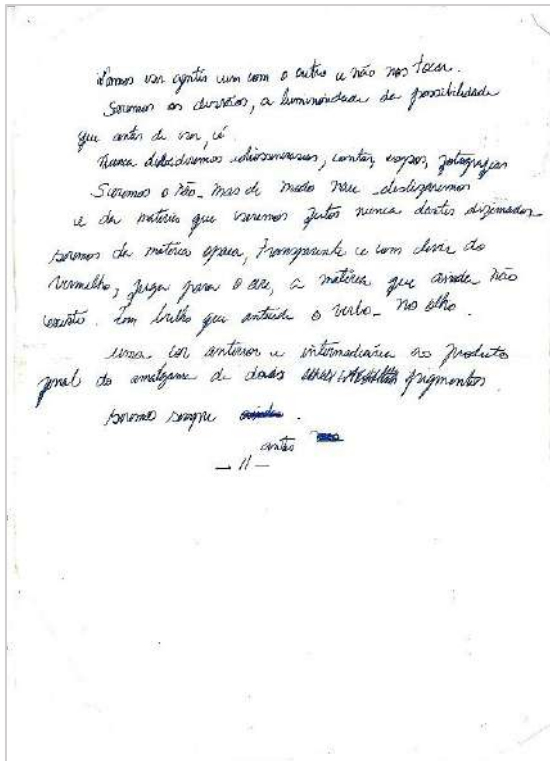 Vamos ser gentis um com o outro e não nos tocar.
Seremos os desvãos, a luminosidade da possibilidade
que antes de ser, é.
Nunca dividiremos idiossincrasias, contas, corpos, fotografias
Seremos o não. Mas de modo nau deslizaremos
e da matéria que seremos feitos nunca dantes
seremos da matéria opaca, transparente e com devir do
vermelho, para o are, a matéria que ainda não
existe. Tem brilho que antecede o verbo. No olho.
uma cor anterior e intermediária ao produto
final do amálgama de dados pigmentos.
seremos sempre
antes
— 11 —